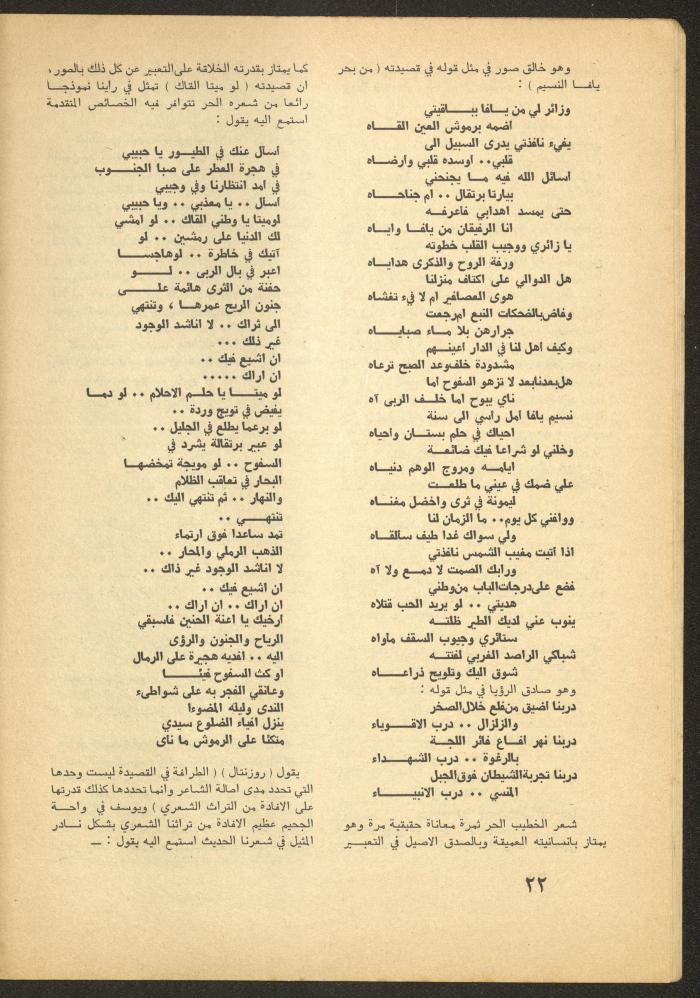 وهو خالق صور في مثل قوله في قصيدته ( من بحر
يافــا النسيم ) :
وزائر لي من يــافا ببــاقيتي
اضمه برموش العين القــاه
يفيء نافذتي يدرى السبيل الى
قلبي٠٠ اوسده قلبي وارضـاه
اسائل الله فيه مــا يجنحني
بيارتا برتقال ٠٠ ام جناحــاه
حتى يمسد اهدابي فاعرفــه
انا الرفيقان من يافــا وايــاه
يا زائري ووجيب القلب خطوته
ورفة الروح والذكرى هدايــاه
هل الدوالي على اكتاف منزلنا
هوى العصافير ام لا فيء تغشاه
وفاض بالضحكات النبع ام رجعت
جرارهن بلا مــاء صبايــاه
وكيف اهل لنا في الدار اعينــهم
مشدودة خلف وعد الصبح ترعاه
هل بعدنا بعد لا تزهو السفوح اما
ناي يبوح اما خلــف الربى آه
نسيم يافا امل راسي الى سنة
احياك في حلم بستــان واحياه
وخلني لو شراعا فيك ضائعــة
ايامــه ومروج الوهم دنيــاه
علي ضمك في عيني ما طلعــت
ليمونة في ثرى واخضل مغنــاه
ووافني كل يوم٠٠ ما الزمان لنا
ولي سواك غدا طيف سالقــاه
اذا اتيت مغيب الشمس نافذتي
ورابك الصمت لا دمــع ولا آه
فضع على درجات الباب من وطني
هديتي ٠٠ لو يريد الحب قتلاه
ينوب عني لديك الطير ظلتــه
ستائري وجيوب السقف ماواه
شباكي الراصد الغربي لفتتــه
شوق اليك وتلويح ذراعــاه
وهو صادق الرؤيا في مثل قوله :
دربنا اضيق من فلع خلال الصخر
والزلزال ٠٠ درب الاقــوياء
دربنا نهر افــاع فائر اللجــة
بالرغوة ٠٠ درب الشهــداء
دربنا تجربة الشيطان فوق الجبل
المنسي ٠٠ درب الانبيــاء
شعر الخطيب الحر ثمرة معاناة حقيقية مرة وهو
يمتاز بانسانيته العميقة وبالصدق الاصيل في التعبيــر
كما يمتاز بقدرته الخلاقة على التعبير عن كل ذلك بالصور،
ان قصيدته ( لو ميتا القاك ) تمثل في راينا نموذجــا
رائعا من شعره الحر تتوافر فيه الخصائص المتقدمة
استمع اليه يقول :
اسأل عنك في الطيــور يا حبيبي
في هجرة العطر على صبا الجنــوب
في امد انتظارنا وفي وجيبي
اسأل ٠٠ يا معذبي ٠٠ ويا حبيبي
لو ميتا يا وطني القاك ٠٠ لو امشي
لك الدنيا على رمشين ٠٠ لو
آتيك في خاطرة ٠٠ لو هاجســا
اعبر في بال الربى ٠٠ لــو
حفنة من الثرى هائمة علــى
جنون الريح عمرهــا ، وتنتهي
الى ثراك ٠٠ لا اناشد الوجود
غير ذلك ٠٠٠
ان اشيع فيك ٠٠
ان اراك ٠٠٠٠٠
لو ميتــا يا حلــم الاحلام ٠٠ لو دمــا
يغيض في تويج وردة ٠٠
لو برعما يطلع في الجليل ٠٠
لو عبير برتقالة يشرد في
السفوح ٠٠ لو مويجة تمخضهــا
البحار في تعاقب الظلام
والنهار ٠٠ ثم تنتهي اليك ٠٠
تنتهــي ٠٠
تمد ساعدا فوق ارتماء
الذهب الرملي والمحار ٠٠
لا اناشد الوجود غير ذاك ٠٠
ان اشيع فيك ٠٠
ان اراك ٠٠ ان اراك ٠٠
ارخيك يا اعنة الحنين فاسبقي
الرياح والجنون والرؤى
اليه ٠٠ افديه هجيرة على الرمال
او كت السفوح فيئــا
وعانقي الفجر به على شواطىء
الندى وليله المضوءا
ينزل افياء الضلوع سيدي
متكئا على الرموش ما نأى
يقول ( روزنتال ) ( الطرافة في القصيدة ليست وحدها
التي تحدد مدى اصالة الشاعر وانما تحددها كذلك قدرتها
على الافادة من التراث الشعري ) ويوسف في واحــة
الجحيم عظيم الافادة من تراثنا الشعري بشكل نــادر
المثيل في شعرنا الحديث استمع اليه يقول : ــ
٢٢